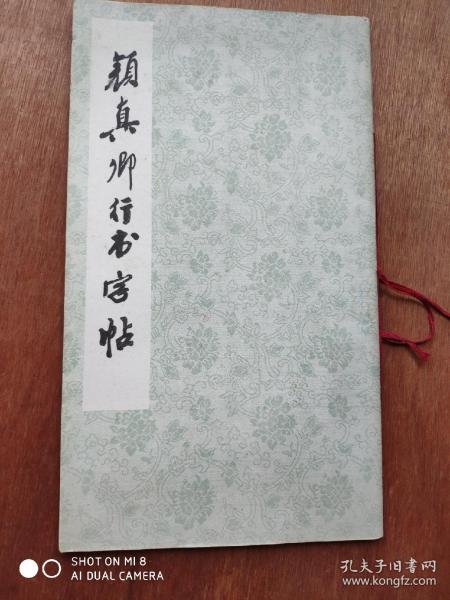 颜真卿行书字帖
SHOT ON MI 8
AI DUAL CAMERA
孔夫子旧书网
www.kongfz.com